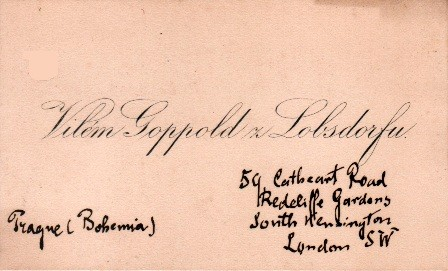 Vilém Goppold z Lobsdorfu.
59 Cathcart Road
Redcliffe Gardens
South Kensington
London SW
Prague (Bohemia)